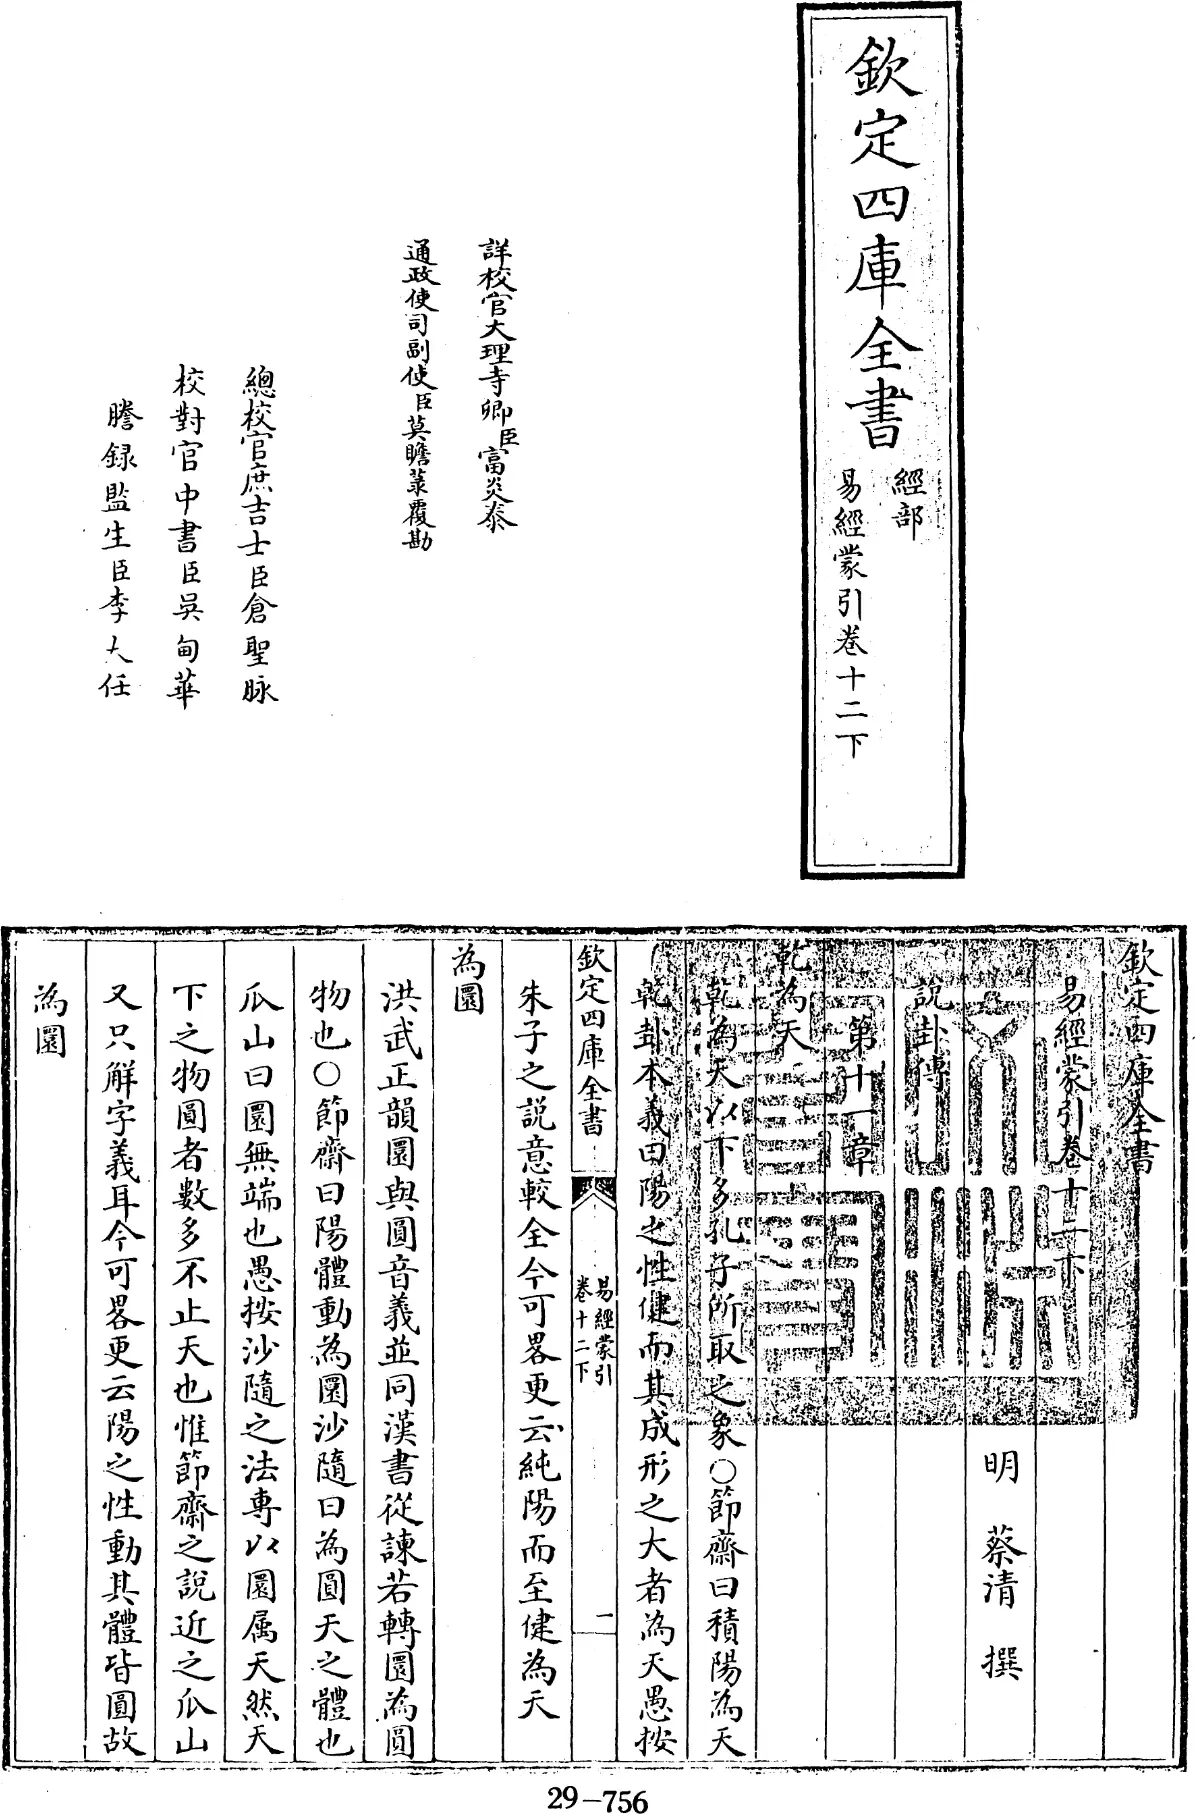 欽定四庫全書
經部
易經蒙引卷十二下
詳校官大理寺卿臣富炎泰
通政使司副使臣莫瞻菉覆勘
總校官庶吉士臣倉聖脉
校對官中書臣吳甸華
謄錄監生臣李大任
欽定四庫全書
易經蒙引卷十二下
明 蔡清 撰
說卦傳
第十一章
乾為天
乾為天以下多孔子所取之象○節齋曰積陽為天
乾卦本義曰陽之性健而其成形之大者為天愚按
欽定四庫全書
易經蒙引
卷十二下
一
朱子之說意較全今可畧更云純陽而至健為天
為圜
洪武正韻圜與圓音義並同漢書從諫若轉圜為圓
物也○節齋曰陽體動為圜沙隨曰為圓天之體也
瓜山曰圜無端也愚按沙隨之法專以圜属天然天
下之物圓者數多不止天也惟節齋之說近之瓜山
又只解字義耳今可畧更云陽之性動其體皆圓故
為圜
29-756